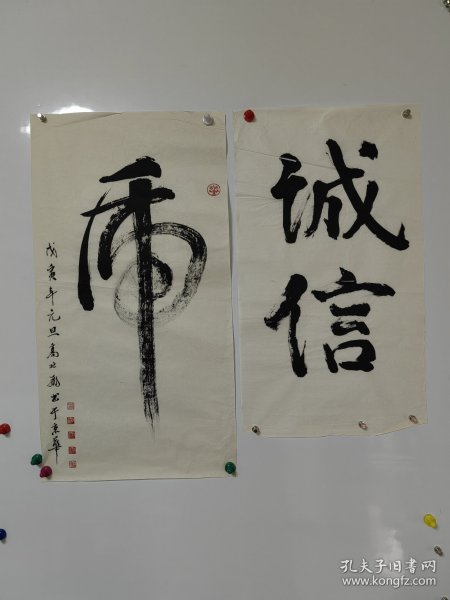 虎
戊寅年元旦高书于京華
诚
信
孔夫子旧书网
www.kongfz.com